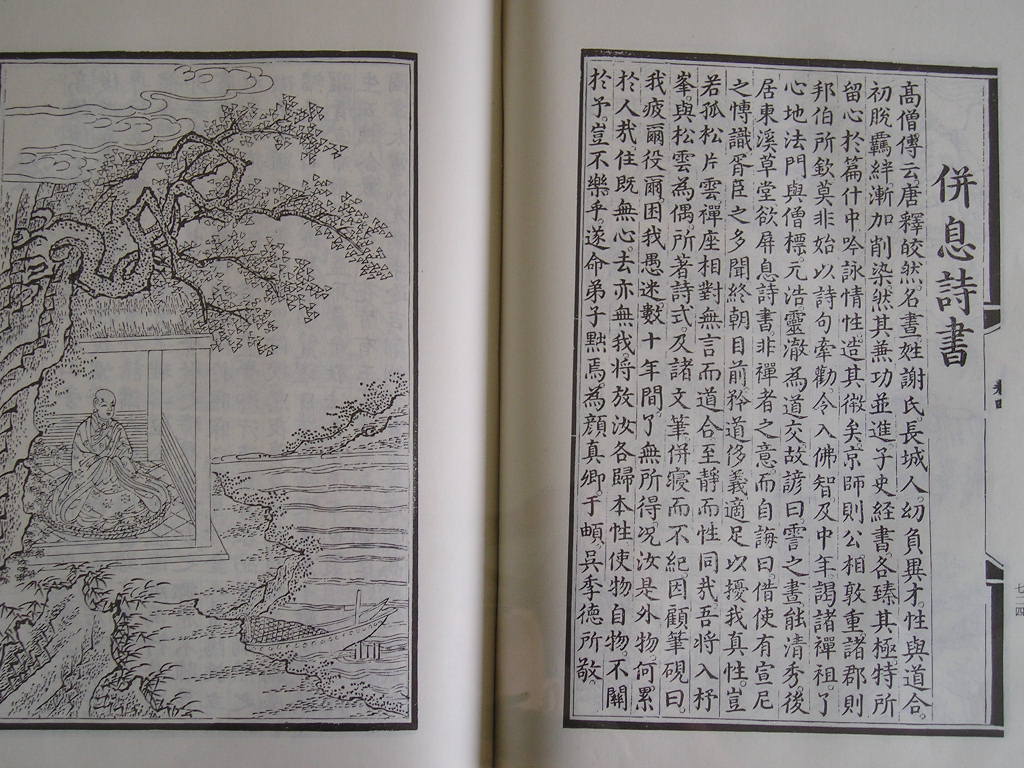 併息詩書
高僧傳云唐釋皎然。名晝姓謝氏長城人。幼負異才。性與道合。
初脫羈絆漸加削染然其兼功並進子史経書。各臻其極特所
留心於篇什中吟詠情性。造其微矣。京師則公相敦重諸郡則
邦伯所欽莫非始以詩句牽勸。令入佛智及中年。謁諸禪祖。了
心地法門與僧標。元浩靈澈為道交故諺曰霅之晝能清秀。後
居東溪草堂欲屏息詩書非禪者之意而自誨曰。借使有宣尼
之博識胥臣之多聞終朝目前矜道侈義適足以擾我真性。豈
若孤松片雲禪座相對無言而道合至靜而性同哉吾將入杼
峯。與松雲為偶。所著詩式。及諸文筆併寢而不紀。因顧筆硯曰
我疲爾役爾。困我愚迷數十年間。了無所得。況汝是外物何累
於人哉住既無心。去亦無我。將放汝各歸本性使物自物不關
於予。豈不樂乎遂命弟子黜焉。為顏真卿于頔吳季德所敬
卷四
七一四